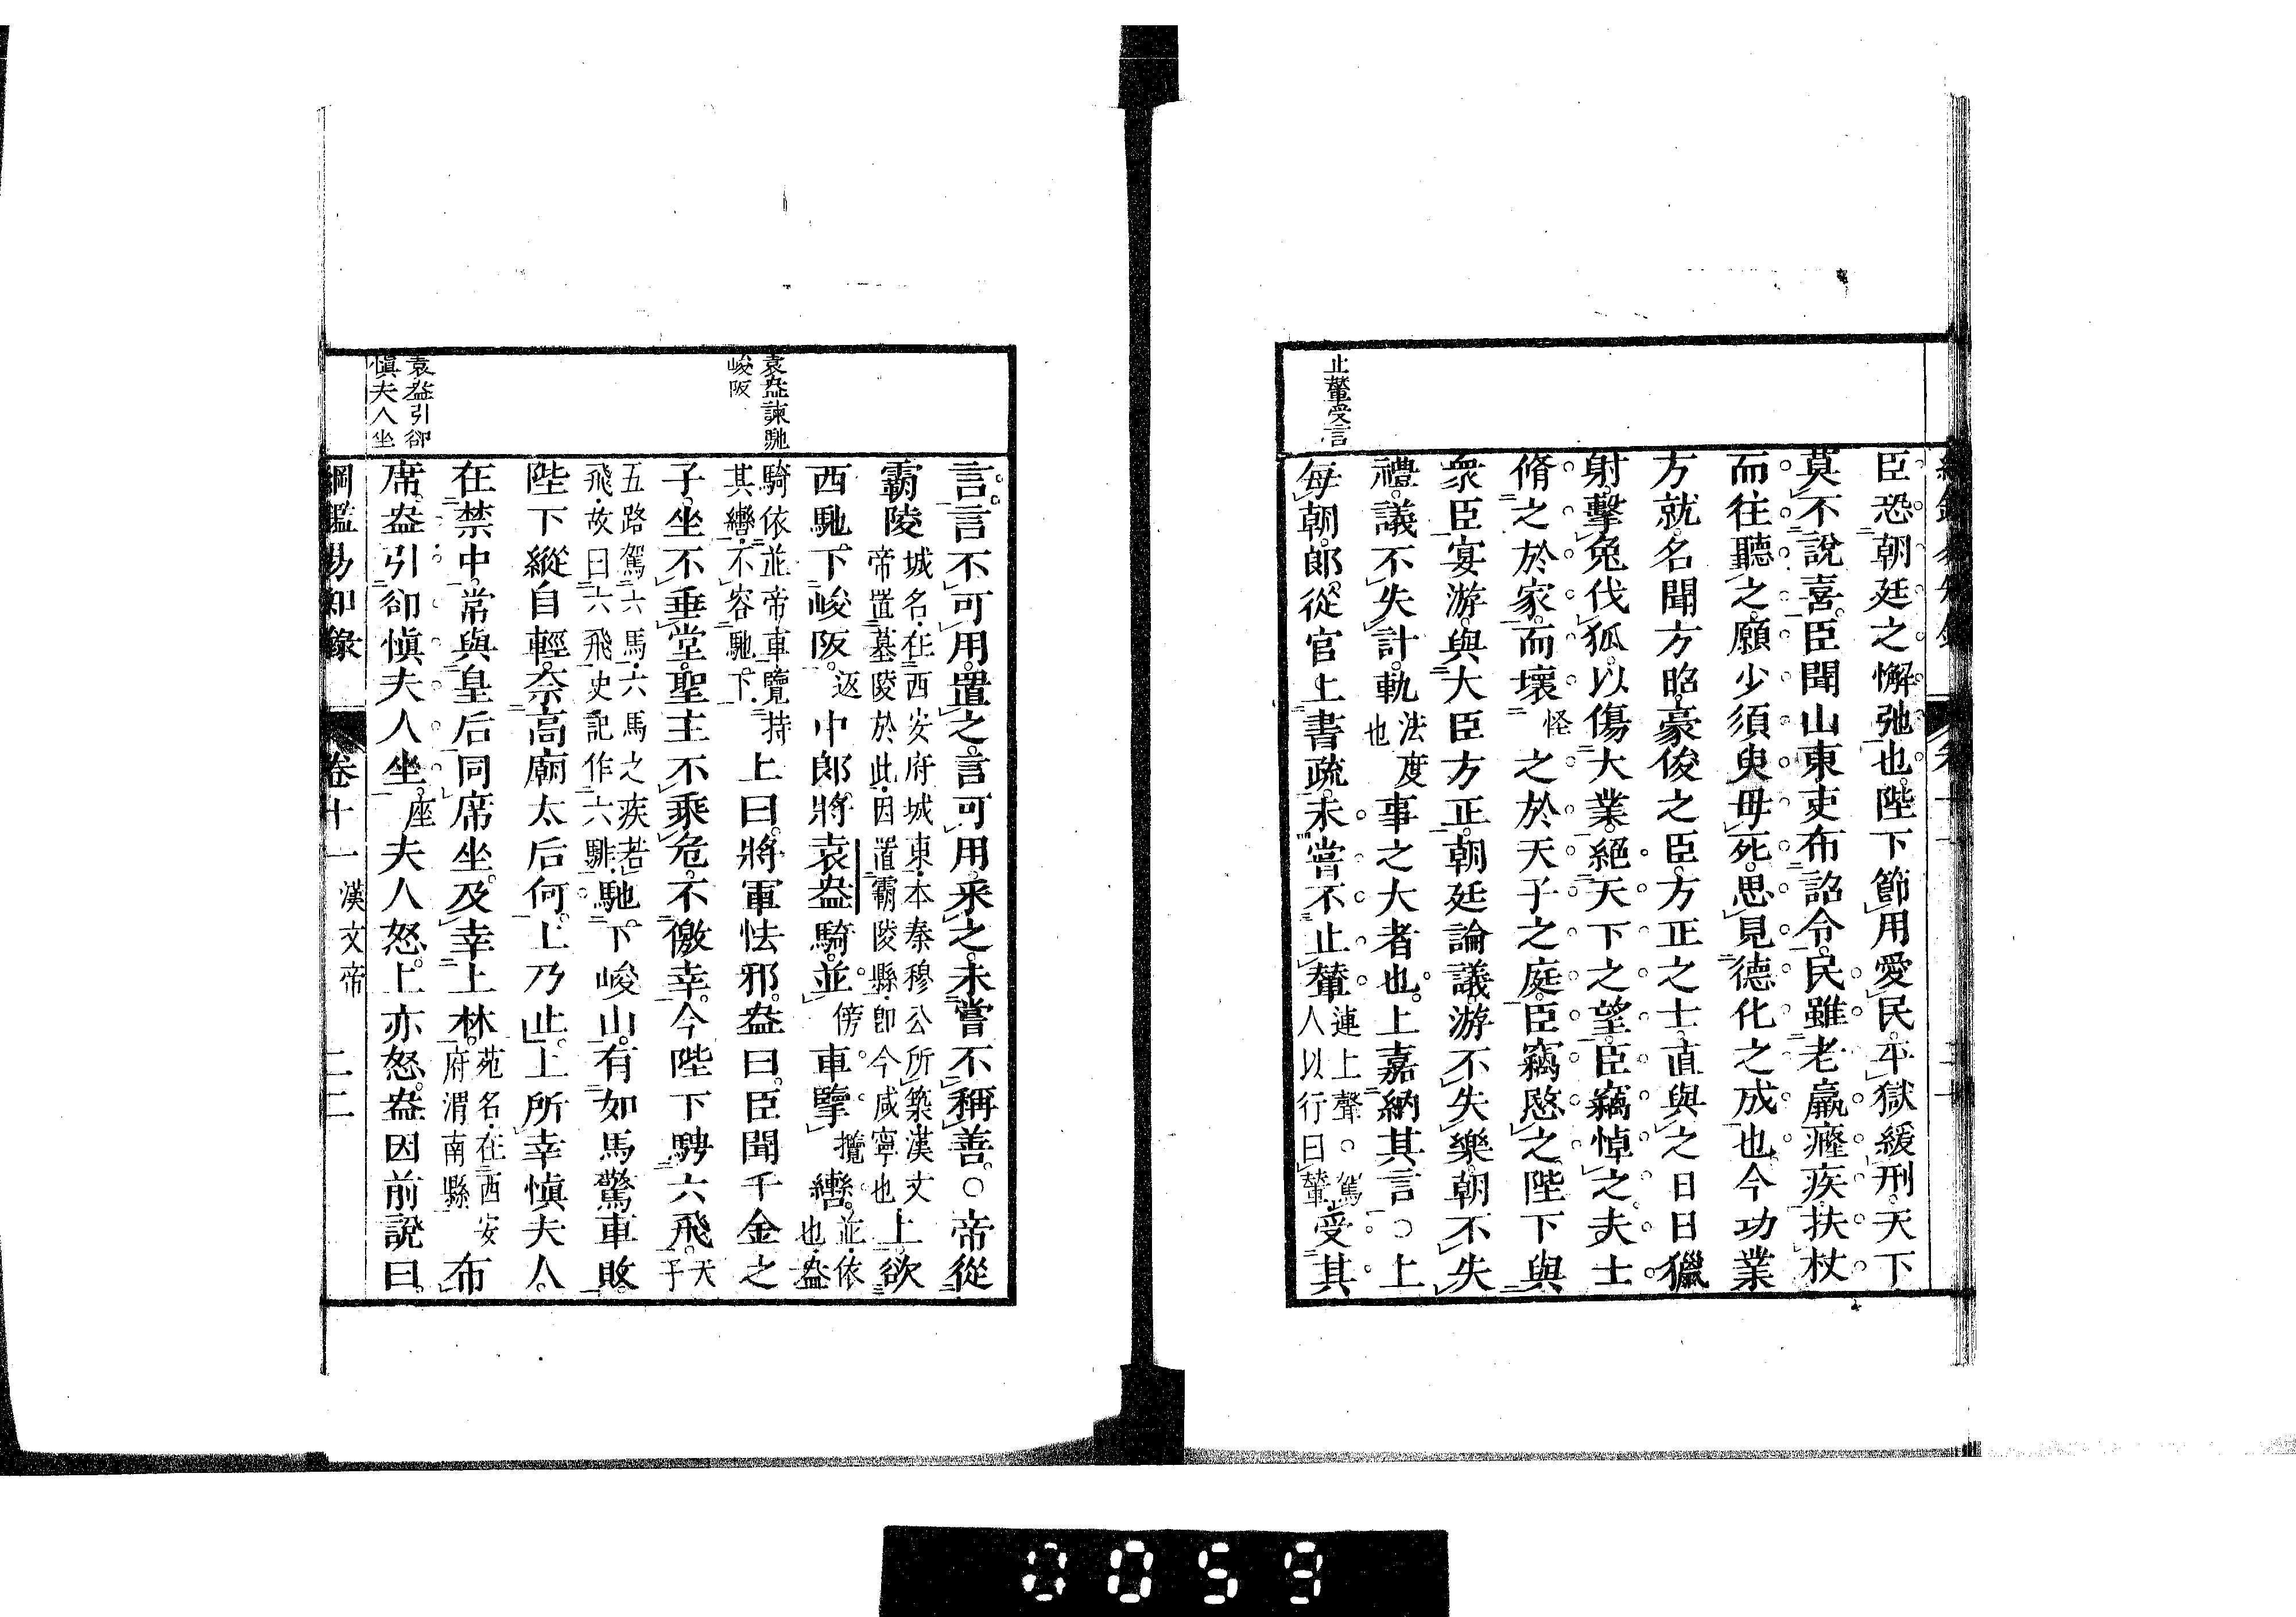 止輦受言
臣恐朝廷之懈弛也陛下節用愛民平獄緩刑天下
莫不說喜臣聞山東吏布詔令民雖老羸癃疾扶杖
而往聽之願少須臾毋死思見德化之成也今功業
方就名聞方昭豪俊之臣方正之士直與之日日獵
射擊兔伐狐以傷大業絕天下之望臣竊悼之夫士
脩之於家而壞怪之於天子之庭臣竊愍之陛下與
衆臣宴游與大臣方正朝廷論議游不失樂朝不失
禮議不失計軌法度也事之大者也上嘉納其言○上
每朝郎從官上書疏未嘗不止輦連上聲○駕人以行曰輦受其
袁盎諫馳峻阪
袁盎引卻慎夫人坐
言言不可用置之言可用采之未嘗不稱善○帝從
霸陵城名在西安府城東本秦穆公所築漢文帝置墓陵於此因置霸陵縣卽今咸寧也上欲
西馳下峻阪返中郎將袁盎騎並傍車擥攬轡並依也盎
騎依並帝車覽持其轡不容馳下上曰將軍怯邪盎曰臣聞千金之
子坐不垂堂聖主不乘危不徼幸今陛下騁六飛天子
五路駕六馬六馬之疾若飛故曰六飛史記作六騑馳下峻山有如馬驚車敗
陛下縱自輕奈高廟太后何上乃止上所幸慎夫人
在禁中常與皇后同席坐及幸上林苑名在西安府渭南縣布
席盎引卻慎夫人坐座夫人怒上亦怒盎因前說曰
綱鑑易知錄 卷十一 漢文帝 二二
0059